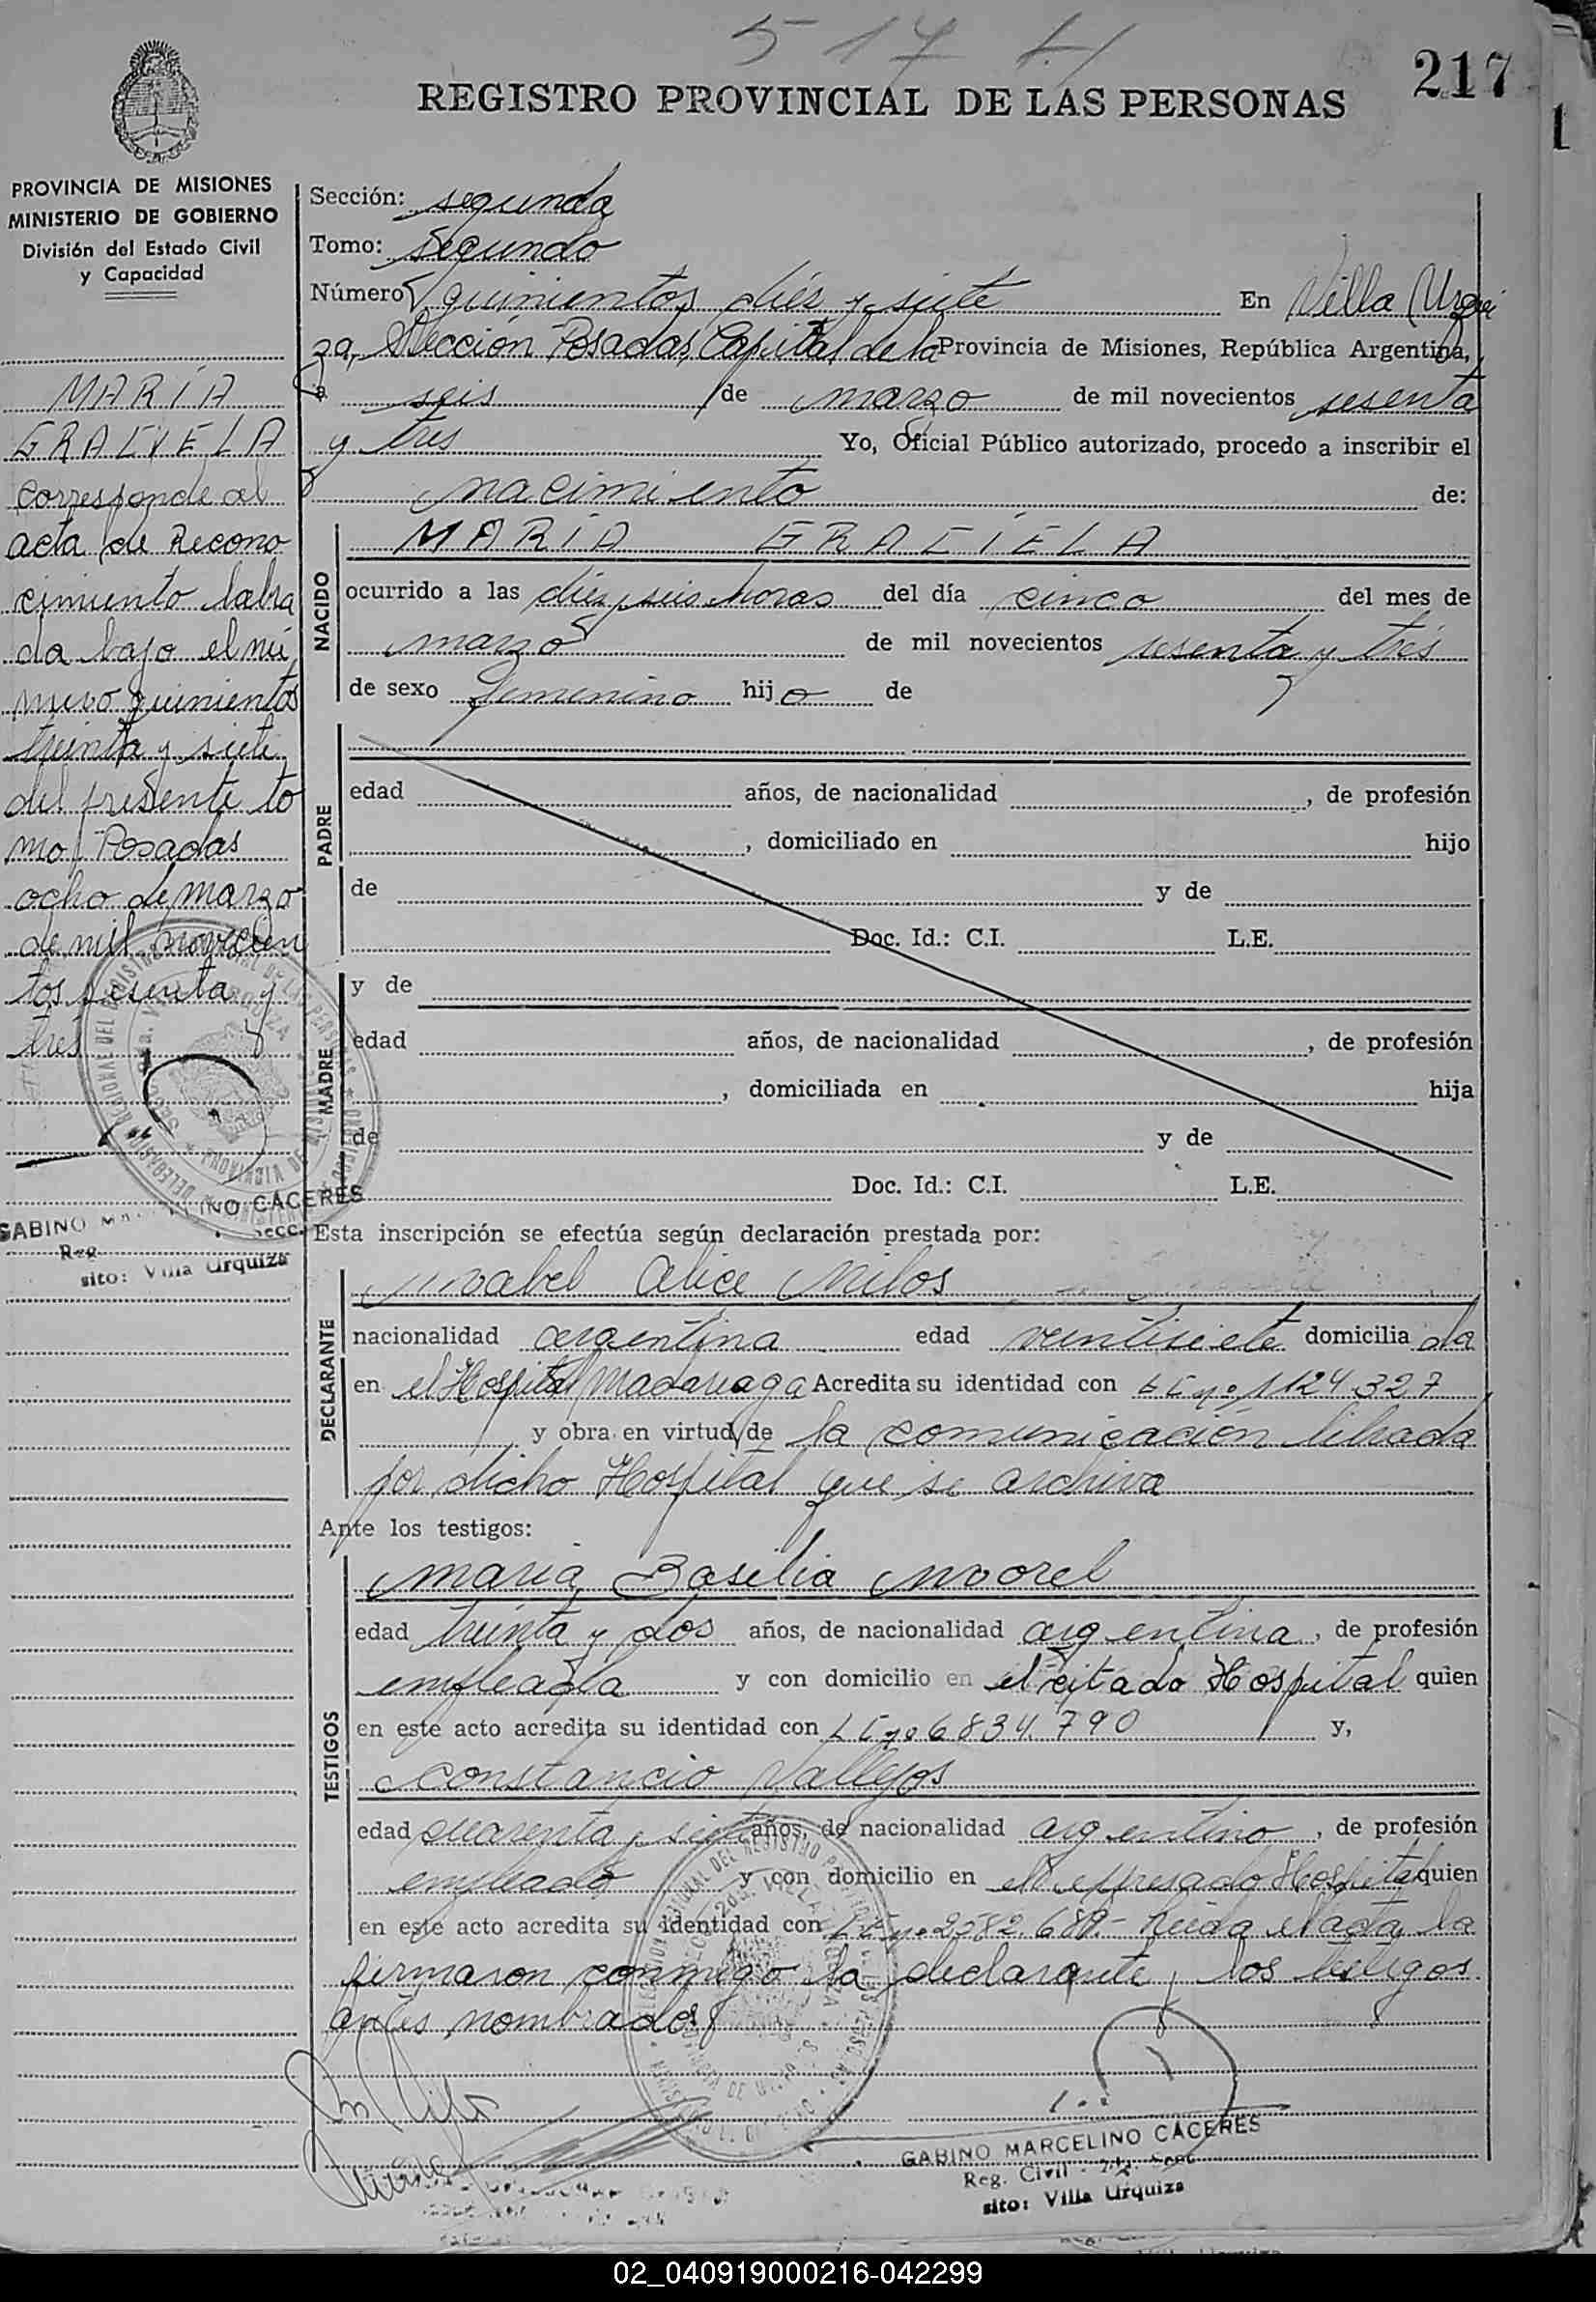 517
217
REGISTRO PROVINCIAL DE LAS PERSONAS
PROVINCIA DE MISIONES
MINISTERIO DE GOBIERNO
División del Estado Civil
y Capacidad
MARÍA
GRACIELA
corresponde al
acta de Recono
cimiento labra
da bajo el nú
mero quinientos
treinta y siete
del presente to
mo Posadas
ocho de marzo
de mil novecien
tos sesenta y
tres
GABINO CACERES
Reg.
sito: Villa Urquiza
Sección: segunda
Tomo: segundo
Número quinientos diéz y siete En Villa Urqui
za, Sección Posadas, Capital de la Provincia de Misiones, República Argentina,
a seis de marzo de mil novecientos sesenta
y tres Yo, Oficial Público autorizado, procedo a inscribir el
nacimiento de:
NACIDO
MARÍA GRACIELA
ocurrido a las diez y seis horas del día cinco del mes de
marzo de mil novecientos sesenta y trés
de sexo femenino hijo de
PADRE
edad años, de nacionalidad , de profesión
, domiciliado en hijo
de y de
Doc. Id.: C.I. L.E.
MADRE
y de
edad años, de nacionalidad , de profesión
, domiciliada en hija
de y de
Doc. Id.: C.I. L.E.
Esta inscripción se efectúa según declaración prestada por:
DECLARANTE
Mabel Alice Milos
nacionalidad argentina edad veintisiete domicilia da
en el Hospital Madariaga Acredita su identidad con LC nº 1124.327
y obra en virtud de la comunicación librada
por dicho Hospital que se archiva
Ante los testigos:
TESTIGOS
María Basilia Morel
edad treinta y dos años, de nacionalidad argentina, de profesión
empleada y con domicilio en el citado Hospital quien
en este acto acredita su identidad con LC nº 6834.790 y,
Constancio Vallejos
edad cuarenta y siete años, de nacionalidad argentino, de profesión
empleado y con domicilio en el expresado Hospital quien
en este acto acredita su identidad con nº 2582.689.- Leida el acta la
firmaron conmigo la declarante y los testigos
antes nombrados
GABINO MARCELINO CACERES
Reg. Civil
sito: Villa Urquiza
02_040919000216-042299